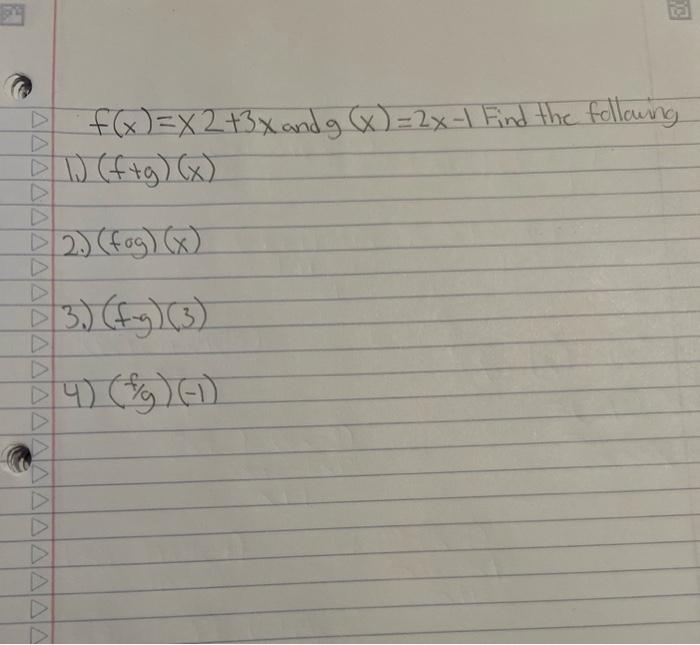 f(x)=x2+3x and g(x)=2x-1 Find the following
1.) (f+g)(x)
2.) (fog)(x)
3.) (f-g)(3)
4) (f/g)(-1)